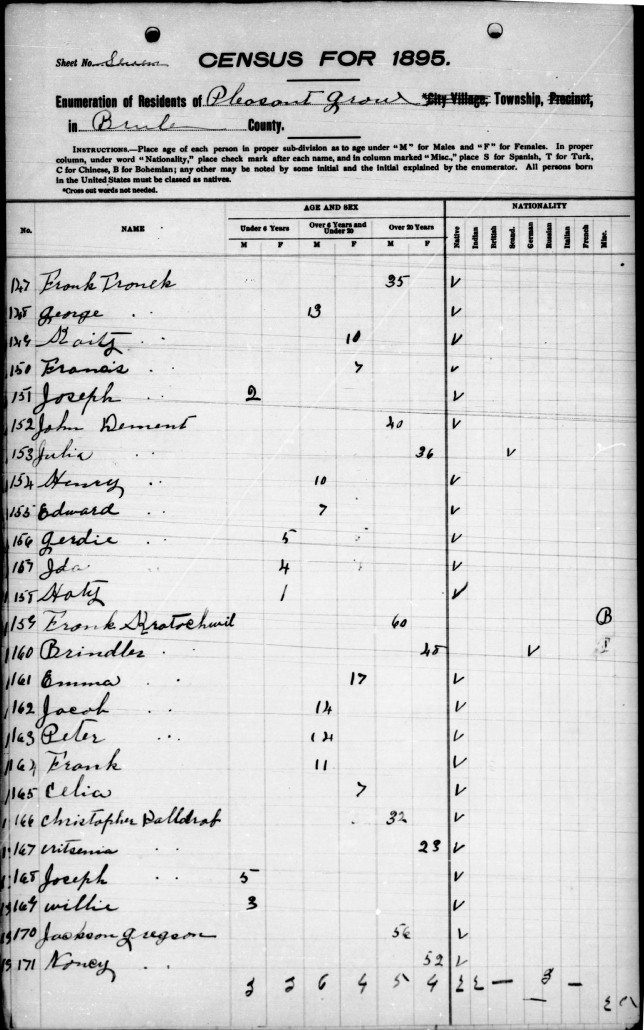 Sheet No. Seven
CENSUS FOR 1895.
Enumeration of Residents of Pleasant Grove *City Village, Township, Precinct,
in Brule County.
INSTRUCTIONS.—Place age of each person in proper sub-division as to age under "M" for Males and "F" for Females. In proper
column, under word "Nationality," place check mark after each name, and in column marked "Misc.," place S for Spanish, T for Turk,
C for Chinese, B for Bohemian; any other may be noted by some initial and the initial explained by the enumerator. All persons born
in the United States must be classed as natives.
*Cross out words not needed.
AGE AND SEX NATIONALITY
No. NAME Under 6 Years Over 6 Years and Under 20 Over 20 Years Native Indian British Scand. German Russian Italian French Misc.
M F M F M F
147 Frank Tronek 35 ✓
148 George " 13 ✓
149 " 10 ✓
150 Francis " 7 ✓
151 Joseph " 2 ✓
152 John Dement 40 ✓
153 Julia " 36 ✓
154 Henry " 10 ✓
155 Edward " 7 ✓
156 Gerdie " 5 ✓
157 Ida " 4 ✓
158 Haty " 1 ✓
159 Frank Kratochwil 60 B
160 Brindler " 48 ✓
161 Emma " 17 ✓
162 Jacob " 14 ✓
163 Peter " 12 ✓
164 Frank 11 ✓
165 Celia 7 ✓
166 Christopher Dalldraf 32 ✓
167 " 23 ✓
168 Joseph " 5 ✓
169 Willie 3 ✓
170 Jackson Gregson 56 ✓
171 Nancy " 52 ✓
3 3 6 4 5 4